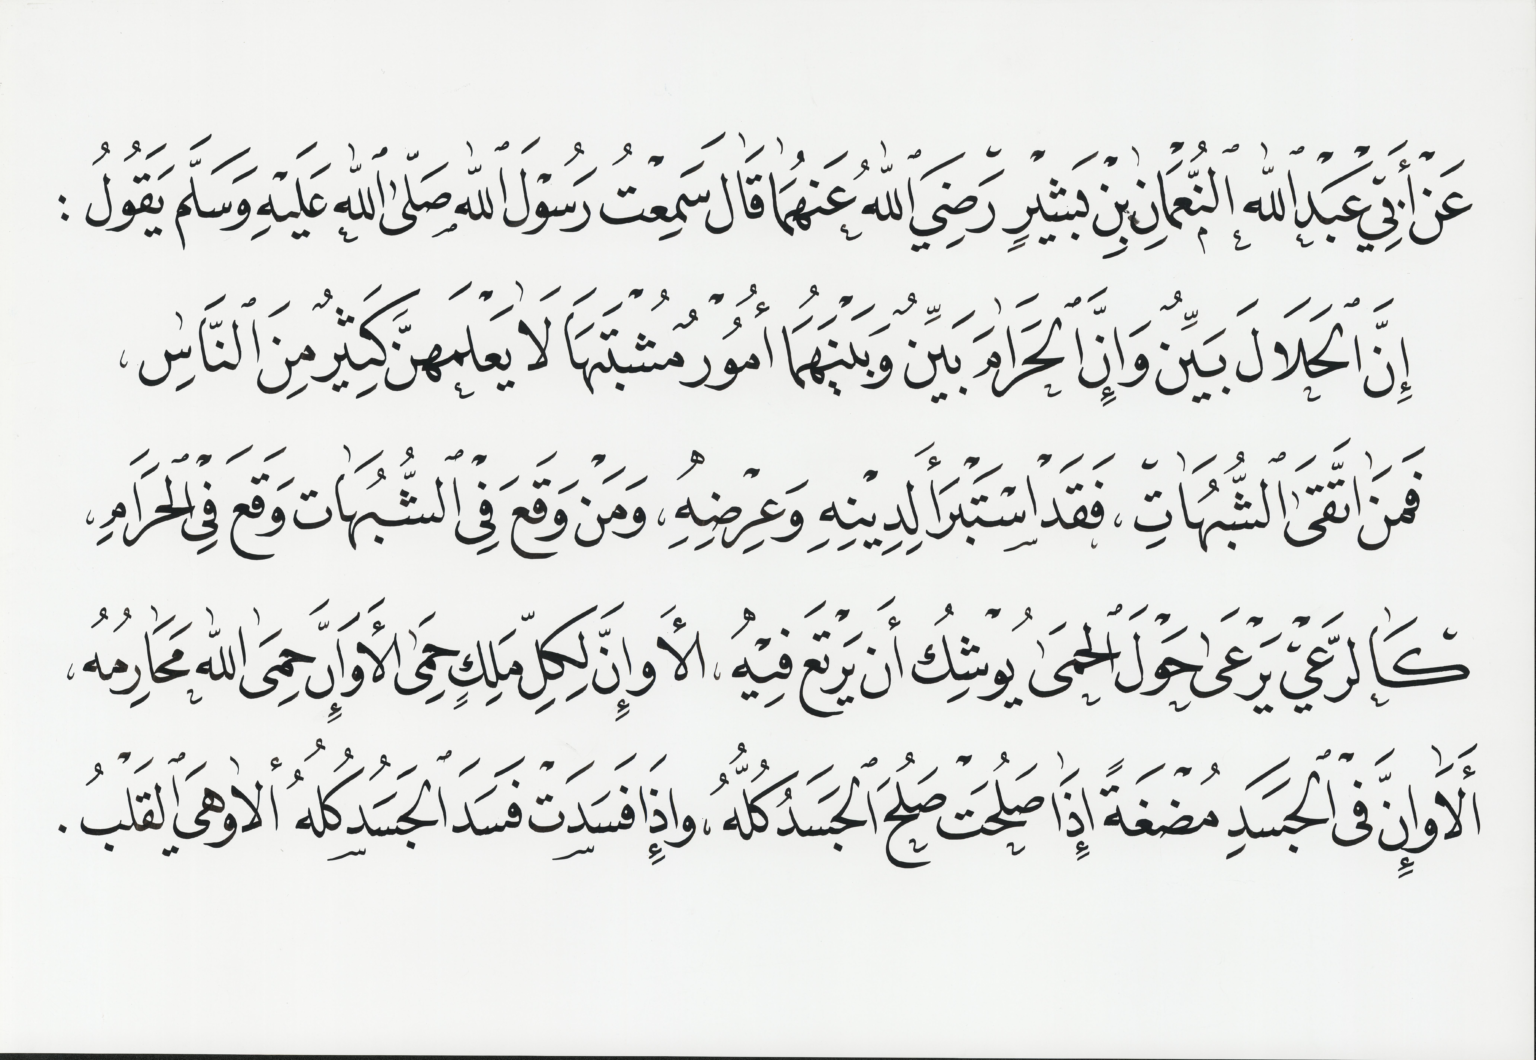 عَنْ أَبِي عَبْدِ ٱللَّهِ ٱلنُّعْمَانِ بْنِ بَشِيْرٍ رَضِيَ ٱللَّهُ عَنهُمَا قَالَ سَمِعْتُ رَسُوْلَ ٱللَّهِ صَلَّىٰ ٱللَّهِ عَلَيْهِ وَسَلَّمَ يَقُولُ :
إِنَّ ٱلْحَلَالَ بَيِّنٌ وَإِنَّ ٱلْحَرَامَ بَيِّنٌ وَبَيْنَهُمَا أُمُوْرٌ مُشْتَبَهَا لَا يَعْلَمهنَّ كَثِيْرٌ مِنَ ٱلنَّاسِ ،
فَمَنَ اتَّقَىٰ ٱلشُّبُهَاتِ ، فَقَدْ اسْتَبْرَأَ لِدِيْنِهِ وَعِرْضِهِ ، وَمَنْ وَقَعَ فِيْ ٱلشُّبُهَات وَقَعَ فِيْ ٱلْحَرَامِ ،
كَٱلرَّعِيْ يَرْعَىٰ حَوْلَ ٱلْحِمَىٰ يُوْشِكُ أَن يَرْتَعَ فِيْهُ ، الأَ وإِنَّ لِكِلِّ مَلِكٍ حِمَىٰ الأَ وَإِنَّ حِمَىٰ اللَّه مَحَارِمُهُ ،
أَلَا وَإِنَّ فِيْ ٱلْجَسَدِ مُضْغَةً إِذَا صَلُحَتْ صَلُحَ ٱلْجَسَدُ كُلُّهُ ، وإِذَا فَسَدَتْ فَسَدَ ٱلْجَسُد كُلُهُ ألا وَهيَ ٱلقَلْبُ .